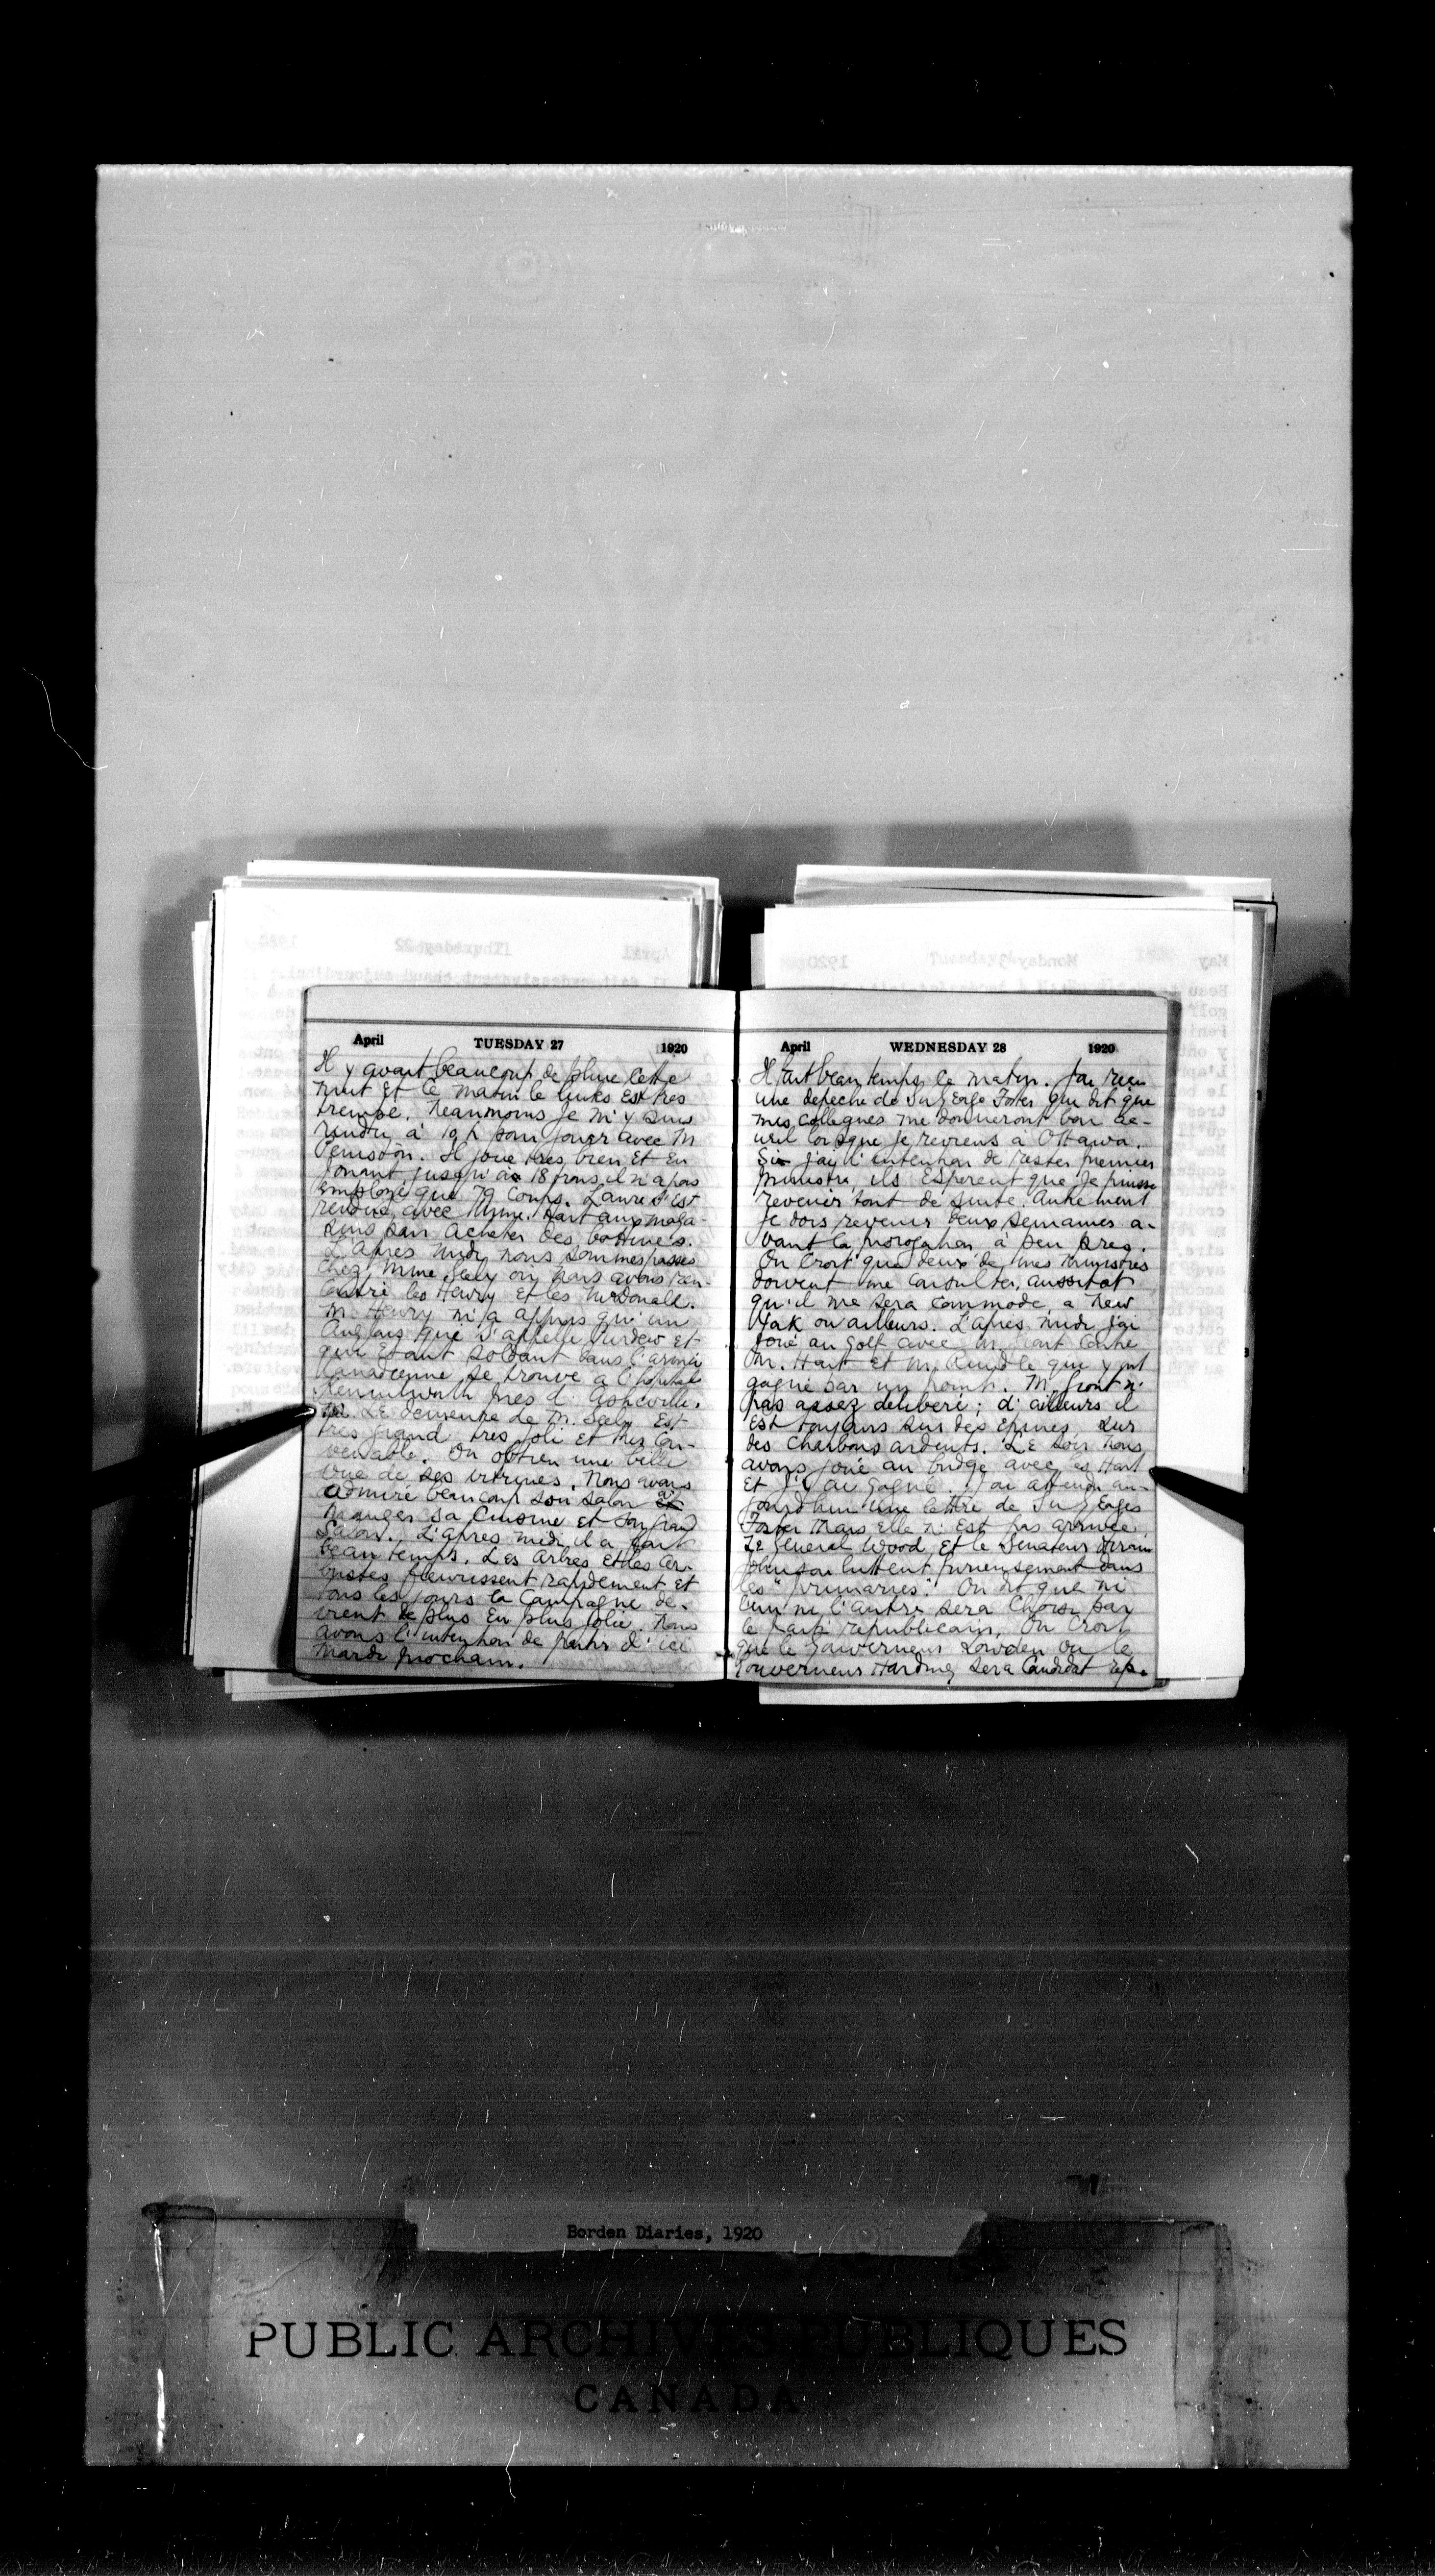 April TUESDAY 27 1920
Il y avait beaucoup de pluie cette
nuit et le matin le links est très
trempé. Neanmoins je m'y suis
rendu à 10 h pour jouer avec M
Denison. Il joue très bien et en
jouant jusqu'à 18 trous, il n'a pas
employé que 79 coups. Laura s'est
rendue avec Mme. Hart aux maga-
sins acheter des bottines.
L'apres midi nous sommes passés
chez Mme Seely ou nous avons ren-
contré les Henry et les McDonald.
M. Henry m'a appris qu'un
Anglais que s'appelle et
qui étant soldat dans l'armée
Canadienne se trouve a l'hopital
Kennilworth pres d'Asheville.
Le demeure de M. Seely est
très grand très joli et très con-
venable. On obtien une belle
vue de ses vitrines. Nous avons
admiré beaucoup son salon à
manger sa cuisine et son grand
salon. L'apres midi il a fait
beau temps. Les arbres et les ar-
bustes fleurissent rapidement et
tous les jours la campagne de-
vient de plus en plus jolie. Nous
avons l'intention de partir d'ici
mardi prochain.
April WEDNESDAY 28 1920
Il fait beau temps le matin. J'ai reçu
une depeche de Sir George Foster qui dit que
mes collegues me donneront bon ac-
ueil lorsque je reviens à Ottawa.
Si j'ai l'intention de rester premier
ministre, ils esperent que je puisse
revenir tout de suite. Autrement
je dois revenir deux semaines a-
vant la prorogation à peu pres.
On croit que deux de mes ministres
doivent me consulter, aussitot
qu'il me sera commode, a New
York ou ailleurs. L'apres midi j'ai
joué au golf avec M. Grant contre
M. Hart et M. que y ont
gagné par un point. M. Grant n'
pas assez deliberé; d'ailleurs il
est toujours sur des epines, sur
des charbons ardents. Le soir nous
avons joué au bridge avec les Hart
et j'y ai gagné. J'ai attendu au-
jourd'hui une lettre de Sir George
Foster mais elle n'est pas arrivée.
Le General Wood et le Senateur Hiram
Johnson luttent furieusement dans
les "primaries." On dit que ni
l'un ni l'autre sera choisi par
le parti republicain. On croit
que le Gouverneur Lowden ou le
Gouverneur Harding sera candidat rep-
Borden Diaries, 1920
PUBLIC ARCHIVES PUBLIQUES
CANADA